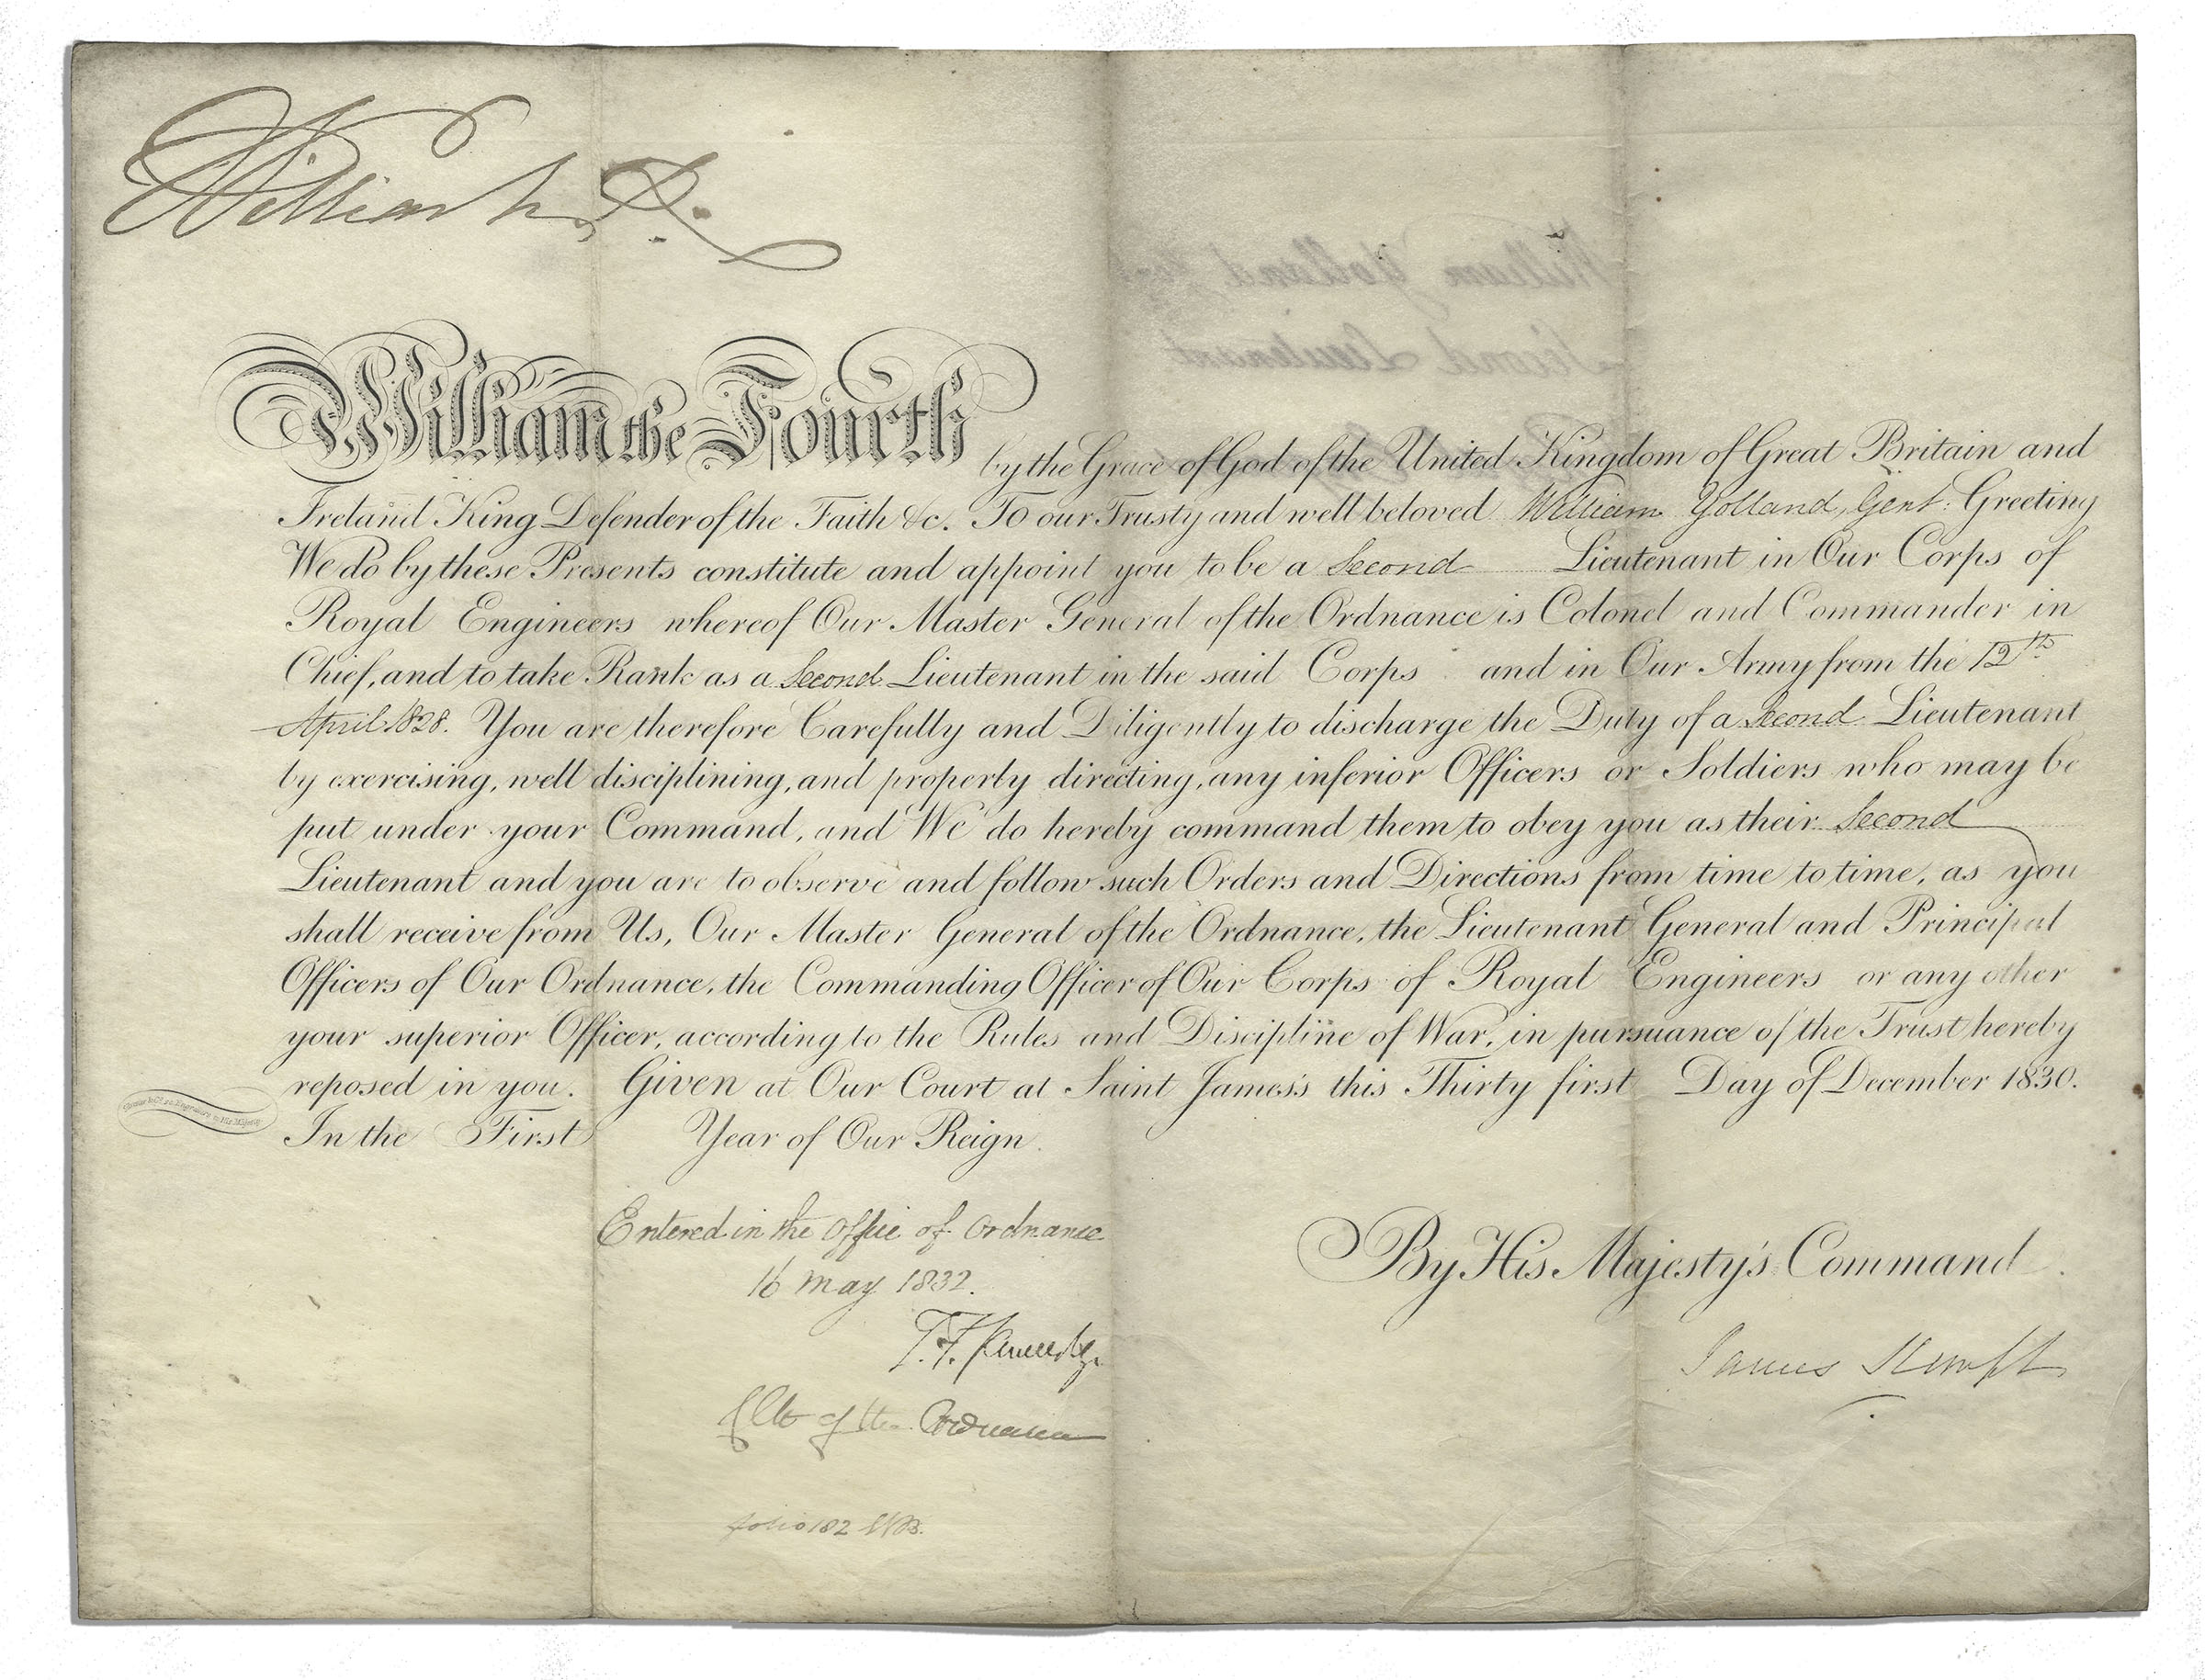 William R.
William the Fourth by the Grace of God of the United Kingdom of Great Britain and
Ireland King Defender of the Faith &c. To our Trusty and well beloved William Yolland, Gent: Greeting
We do by these Presents constitute and appoint you to be a Second Lieutenant in Our Corps of
Royal Engineers whereof Our Master General of the Ordnance is Colonel and Commander in
Chief, and to take Rank as a Second Lieutenant in the said Corps and in Our Army from the 12th
April 1828. You are therefore Carefully and Diligently to discharge the Duty of a Second Lieutenant
by exercising, well disciplining, and properly directing, any inferior Officers or Soldiers who may be
put under your Command, and We do hereby command them to obey you as their Second
Lieutenant and you are to observe and follow such Orders and Directions from time to time, as you
shall receive from Us, Our Master General of the Ordnance, the Lieutenant General and Principal
Officers of Our Ordnance, the Commanding Officer of Our Corps of Royal Engineers or any other
your superior Officer, according to the Rules and Discipline of War, in pursuance of the Trust hereby
reposed in you. Given at Our Court at Saint James's this Thirty first Day of December 1830.
In the First Year of Our Reign.
Entered in the Office of Ordnance
16 May 1832.
By His Majesty's Command
T. F. Kennedy
James Kempt
Clk of the Ordnance
folio 182
William Yolland Gent
Second Lieutenant